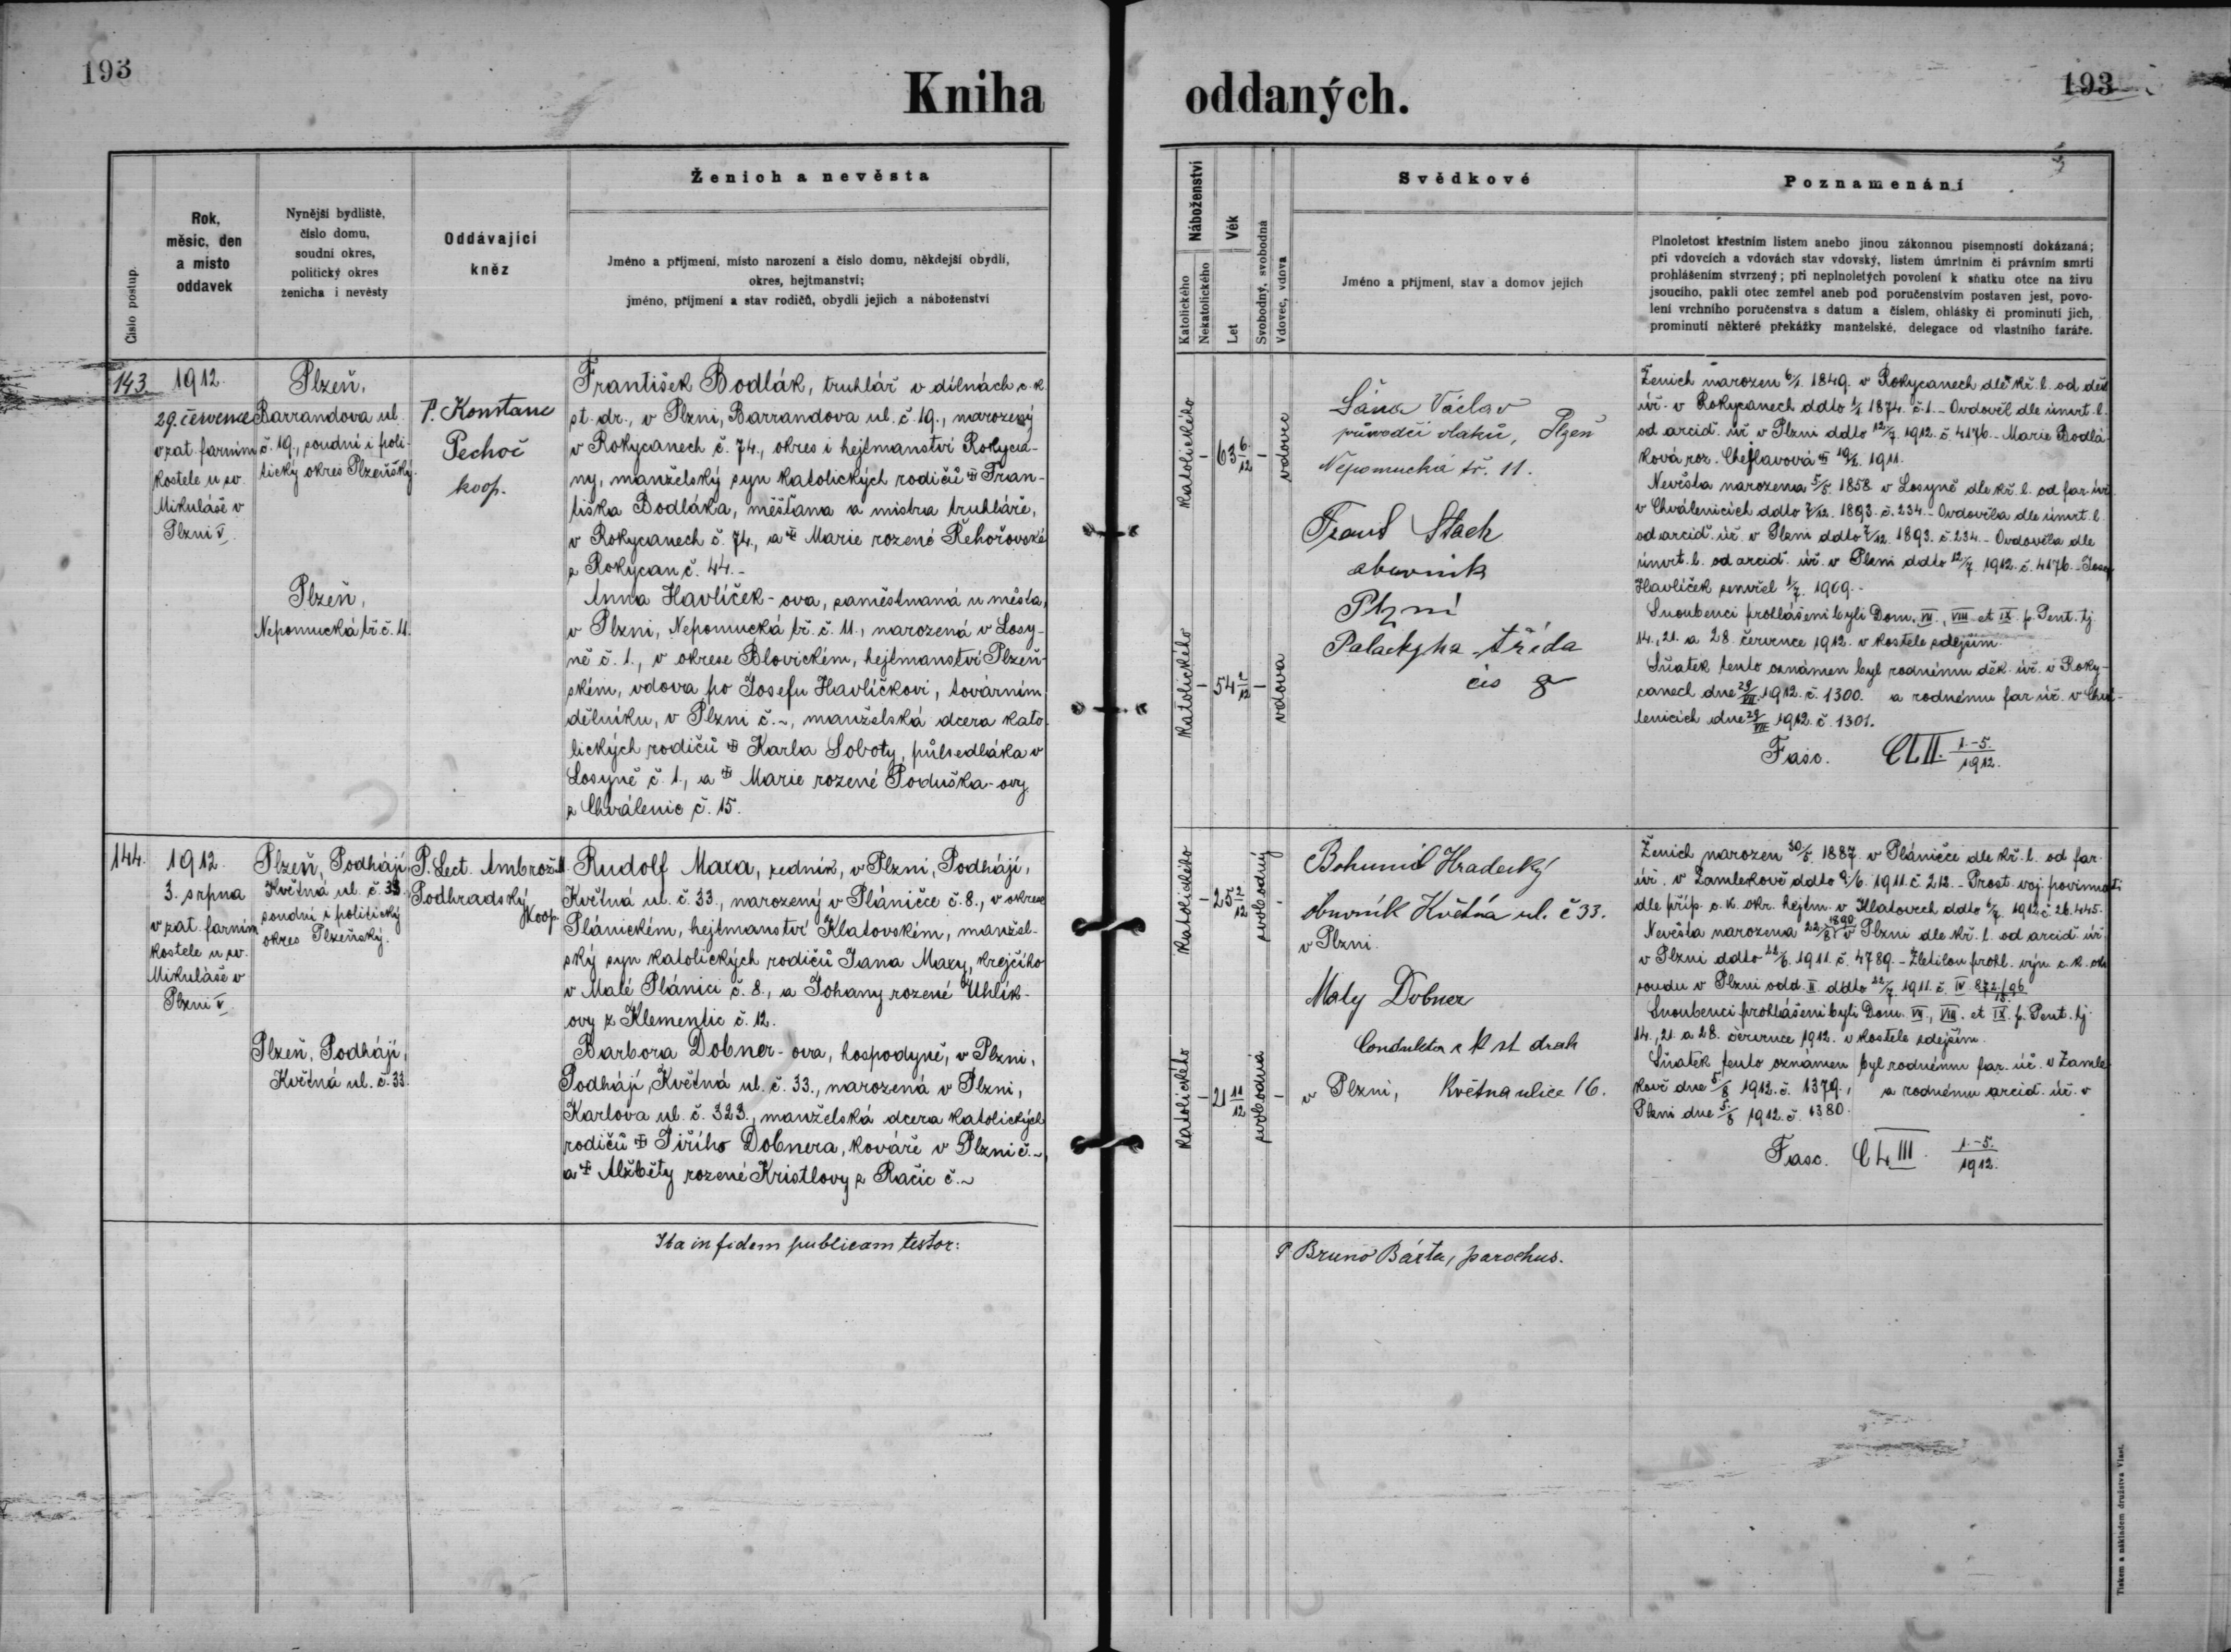 193
193
Kniha oddaných.
Číslo postup.
Rok,
měsíc, den
a místo
oddavek
Nynější bydliště,
číslo domu,
soudní okres,
politický okres
ženicha i nevěsty
Oddávající
kněz
Ženich a nevěsta
Jméno a příjmení, místo narození a číslo domu, někdejší obydlí,
okres, hejtmanství;
jméno, příjmení a stav rodičů, obydlí jejich a náboženství
Náboženství
Katolického
Nekatolického
Věk
Let
Svobodný, svobodná
Vdovec, vdova
Svědkové
Jméno a příjmení, stav a domov jejich
Poznamenání
Plnoletost křestním listem anebo jinou zákonnou písemností dokázaná;
při vdovcích a vdovách stav vdovský, listem úmrtním či právním smrti
prohlášením stvrzený; při neplnoletých povolení k sňatku otce na živu
jsoucího, pakli otec zemřel aneb pod poručenstvím postaven jest, povo-
lení vrchního poručenstva s datum a číslem, ohlášky či prominutí jich,
prominutí některé překážky manželské, delegace od vlastního faráře.
143.
1912.
29. července
v zat. farním
kostele u sv.
Mikuláše v
Plzni V.
Plzeň,
Barrandova ul.
č. 19., soudní i poli-
tický okres Plzeňský.
Plzeň,
Nepomucká tř. č. 11.
P. Konstanc
Pechoč
koop.
František Bodlák, truhlář v dílnách c. k.
st. dr., v Plzni, Barrandova ul. č. 19., narozený
v Rokycanech č. 74., okres i hejtmanství Rokyca-
ny, manželský syn katolických rodičů ✠ Fran-
tiška Bodláka, měšťana a mistra truhláře,
v Rokycanech č. 74., a ✠ Marie rozené Řehořovské
z Rokycan č. 44.-
Anna Havlíček-ova, zaměstnaná u města,
v Plzni, Nepomucká tř. č. 11., narozená v Losy-
ně č. 1., v okrese Blovickém, hejtmanství Plzeň-
ském, vdova po Josefu Havlíčkovi, továrním
dělníku, v Plzni č. ~, manželská dcera kato-
lických rodičů ✠ Karla Soboty, půlsedláka v
Losyně č. 1., a ✠ Marie rozené Poduška-ovy
z Chválenic č. 15.
Katolického
-
63 6/12
-
vdovec
Katolického
-
54 2/12
-
vdova
Šána Václav
průvodčí vlaků, Plzeň
Nepomucká tř. 11.
Franz Stach
obuvník
Plzni
Palackýha třída
čís 8
Ženich narozen 6/1. 1849. v Rokycanech dle kř. l. od děk.
úř. v Rokycanech ddto 1/2. 1874. č. 1. - Ovdověl dle úmrt. l.
od arcid. úř. v Plzni ddto 12/7. 1912. č. 4176. - Marie Bodlá-
ková roz. ✠ 1911.
Nevěsta narozena 5/5. 1858 v Losyně dle kř. l. od far. úř.
v Chválenicích ddto 7/12. 1893. č. 234. - Ovdověla dle úmrt. l.
od arcid. úř. v Plzni ddto 7/12. 1893. č. 234. - Ovdověla dle
úmrt. l. od arcid. úř. v Plzni ddto 12/7. 1912. č. 4176. - Josef
Havlíček zemřel 1/7. 1909. -
Snoubenci prohlášeni byli Dom. VII., VIII. et IX. p. Pent. tj.
14., 21. a 28. července 1912. v kostele zdejším.
Sňatek tento oznámen byl rodnému děk. úř. v Roky-
canech dne 29/VII. 1912. č. 1300. a rodnému far. úř. v Chvá-
lenicích dne 29/VII. 1912. č. 1301.
Fasc. CLII. 1.-5./1912.
144.
1912.
3. srpna
v zat. farním
kostele u sv.
Mikuláše v
Plzni V.
Plzeň, Podhájí,
Květná ul. č. 33.
soudní i politický
okres Plzeňský.
Plzeň, Podhájí,
Květná ul. č. 33.
P. Lect. Ambrož M.
Podhradský
Koop.
Rudolf Maxa, zedník, v Plzni, Podhájí,
Květná ul. č. 33., narozený v Pláničce č. 8., v okrese
Plánickém, hejtmanství Klatovském, manžel-
ský syn katolických rodičů Jana Maxy, krejčího
v Malé Plánici č. 8., a Johany rozené Uhlík-
ovy z Klementic č. 12.
Barbora Dobner-ova, hospodyně, v Plzni,
Podhájí, Květná ul. č. 33., narozená v Plzni,
Karlova ul. č. 323., manželská dcera katolických
rodičů ✠ Jiřího Dobnera, kováře v Plzni č. ~,
a ✠ Alžběty rozené Kristlovy z Račic č. ~
Katolického
-
25 2/12
-
svobodný
Katolického
-
21 11/12
-
svobodná
Bohumil Hradecký
obuvník Květná ul. č 33.
v Plzni.
Maty Dobner
Conduktor c k st drah
v Plzni, Května ulice 16.
Ženich narozen 30/5. 1887. v Pláničce dle kř. l. od far.
úř. v Zamlekově ddto 9/6. 1911. č. 212. - Prost. voj. povinnosti
dle příp. c. k. okr. hejtm. v Klatovech ddto 1/7. 1912. č. 26.445.
Nevěsta narozena 22/8. 1890 v Plzni dle kř. l. od arcid. úř.
v Plzni ddto 22/6. 1911. č. 4789. - Zletilou prohl. výn. c. k. okr.
soudu v Plzni odd. II. ddto 22/7. 1911. č. IV 872/96/15.
Snoubenci prohlášeni byli Dom. VII., VIII. et IX. p. Pent. tj.
14., 21. a 28. července 1912. v kostele zdejším.
Sňatek tento oznámen byl rodnému far. úř. v Zamle-
kově dne 5/8 1912. č. 1379., a rodnému arcid. úř. v
Plzni dne 5/8 1912. č. 1380.
Fasc. CLIII. 1.-5./1912.
Ita in fidem publicam testor:
P. Bruno Bárta, parochus.
Tiskem a nákladem družstva Vlast.